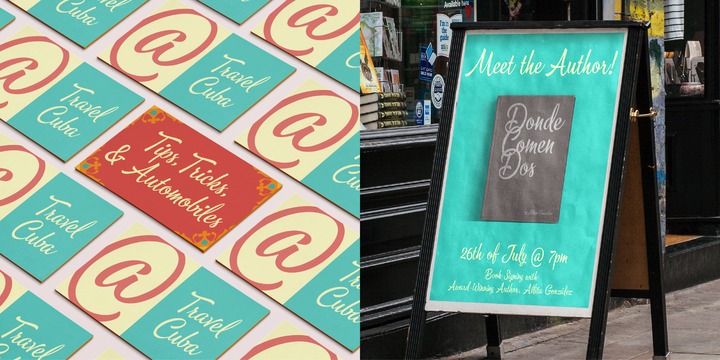 @
Travel
Cuba
@
Travel
Cuba
@
Travel
Cuba
Tips, Tricks,
& Automobiles
@
Travel
Cuba
@
Travel
Cuba
@
Travel
Cuba
@
Meet the Author!
Donde
Comen
Dos
26th of July @ 7pm
Book Signing with
Award Winning Author, Albita González